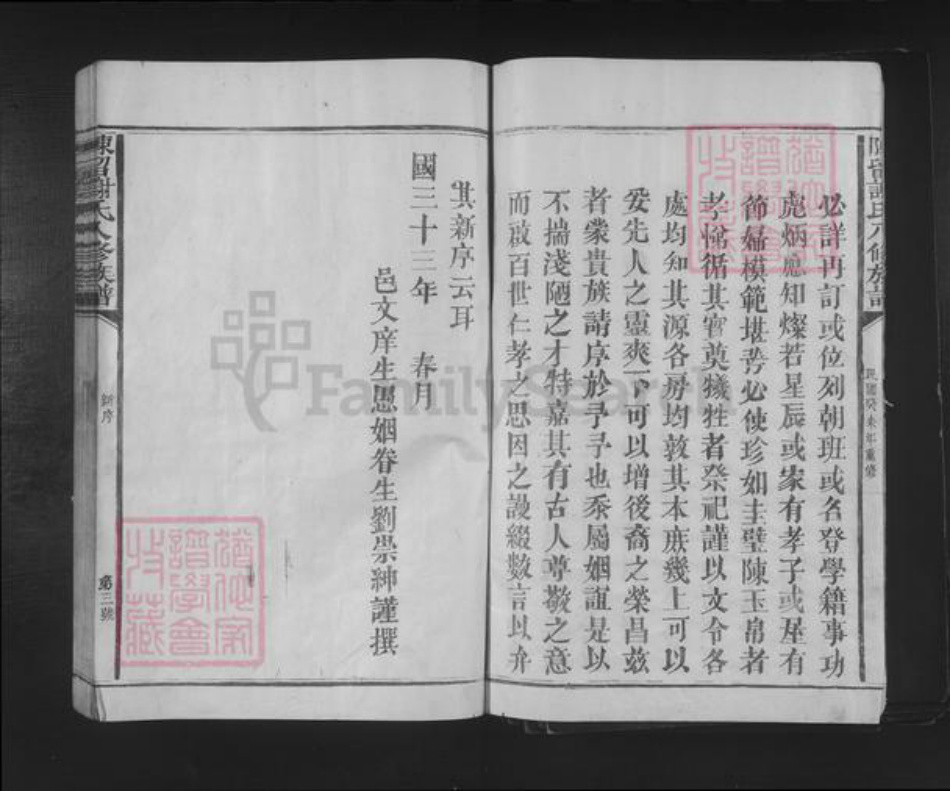 陳留謝氏八修族譜
民國癸未年重修
必詳再訂或位列朝班或名登學籍事功
彪炳應知燦若星辰或家有孝子或屋有
節婦模範堪誇必使珍如圭璧陳玉帛者
孝悌循其實奠犧牲者祭祀謹以文令各
處均知其源各房均敦其本庶幾上可以
妥先人之靈爽下可以增後裔之榮昌茲
者蒙貴族請序於予予也忝屬姻誼是以
不揣淺陋之才特嘉其有古人尊敬之意
而啟百世仁孝之思因之謾綴數言以弁
其新序云耳
國三十三年 春月
邑文庠生愚姻眷生劉崇紳謹撰
陳留謝氏八修族譜
新序
第三號
FamilySearch
譜學會
收藏
譜學會
收藏